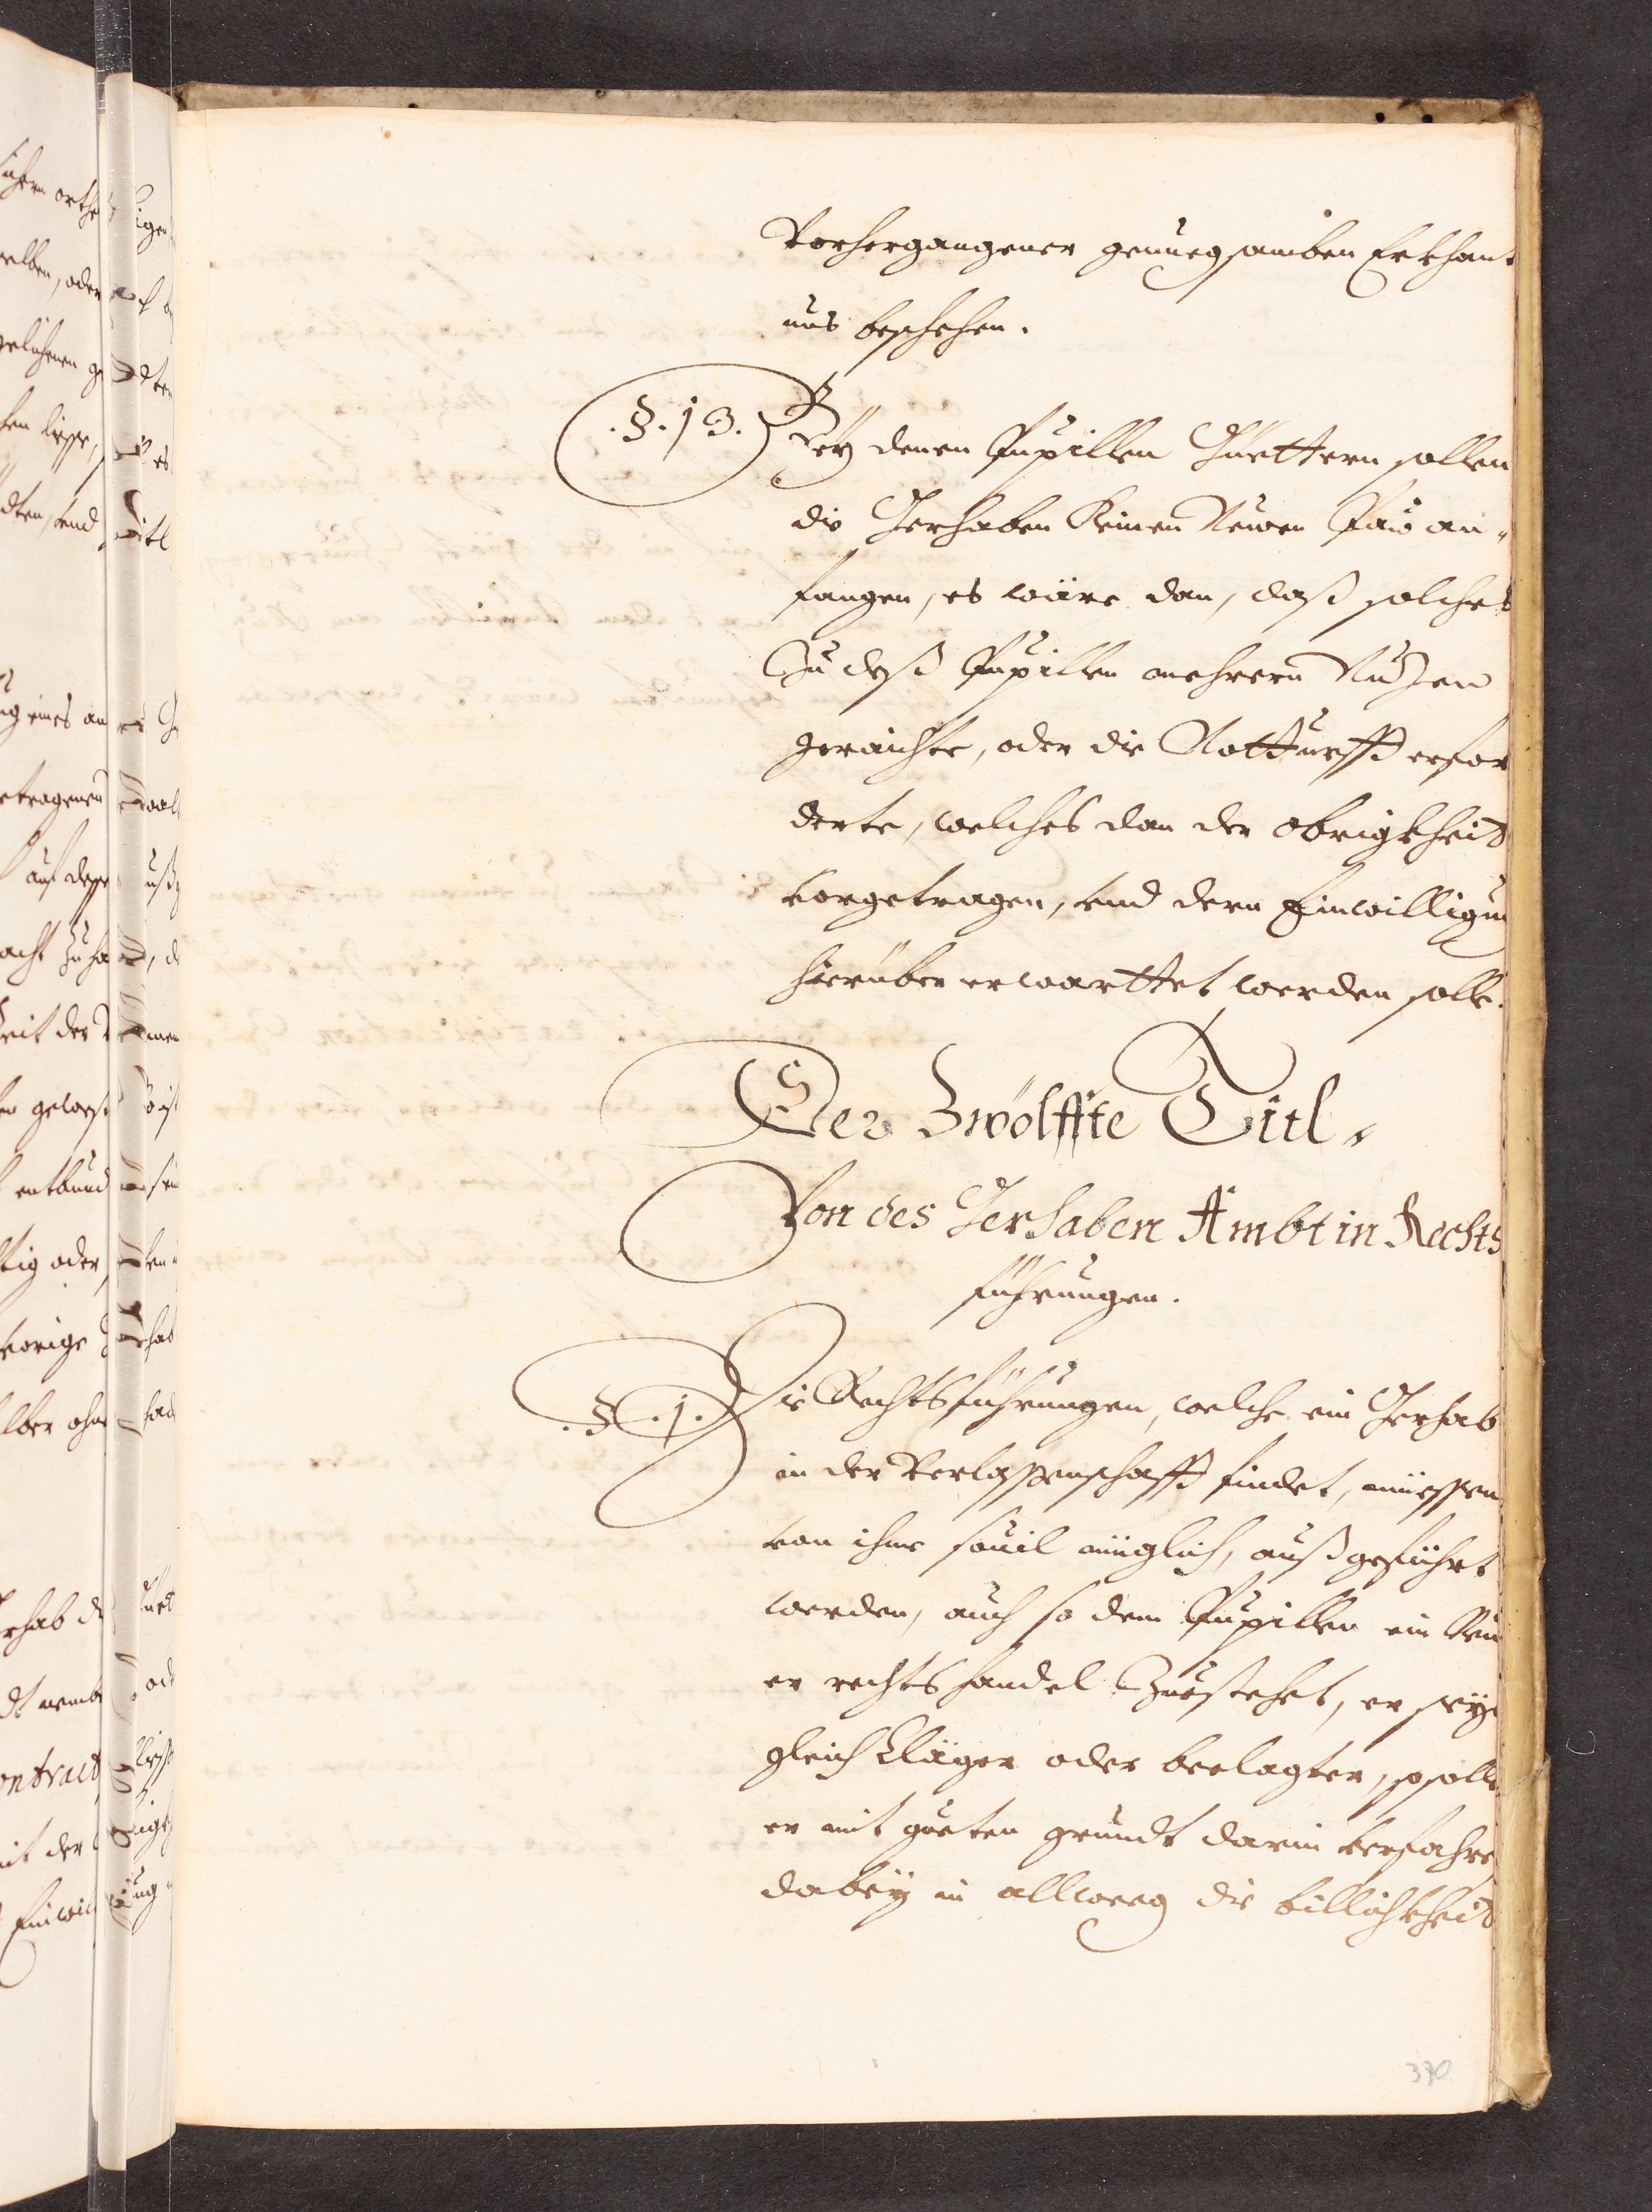 Vorhergangener genuegsamben Erkhant
nus beschehen.
.§.13. Bey denen Pupillen Güettern sollen
die Gerhaben Keinen Neuen Pau an-
fangen, es wäre dan, daß solches
Zu deß Pupillen mehrern Nuzen
geraichte, oder die Notturfft erfor
derte, welches dan der obrigkheit
vorgetragen, vnd dern Einwilligung
hierüber erwarttet werden solle.
Der Zwölffte Titl.
Von des Gerhaben Ambt in Rechts
führungen.
.§.1. Die Rechtsführungen, welche ein Gerhab
in der Verlassenschafft findet, müessen
von ihme souil müglich, außgeführt
werden, auch so dem Pupillen ein Neu
er rechtshandel Zuestehet, er seye
gleich Kläger oder beclagter, so solle
er mit gueten grundt darin verfahren
dabey in allweeg die billichkheit
390